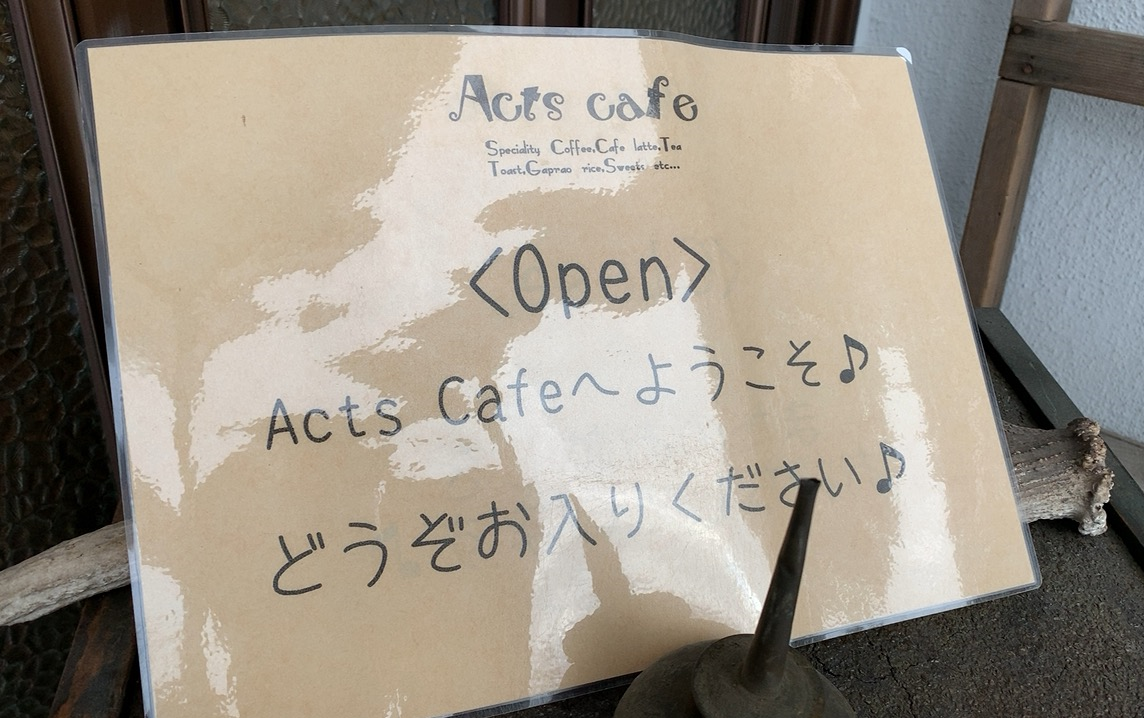 Acts cafe
Speciality Coffee,Cafe latte,Tea
Toast,Gaprao rice,Sweets etc...
<Open>
Acts Cafeへようこそ♪
どうぞお入りください♪